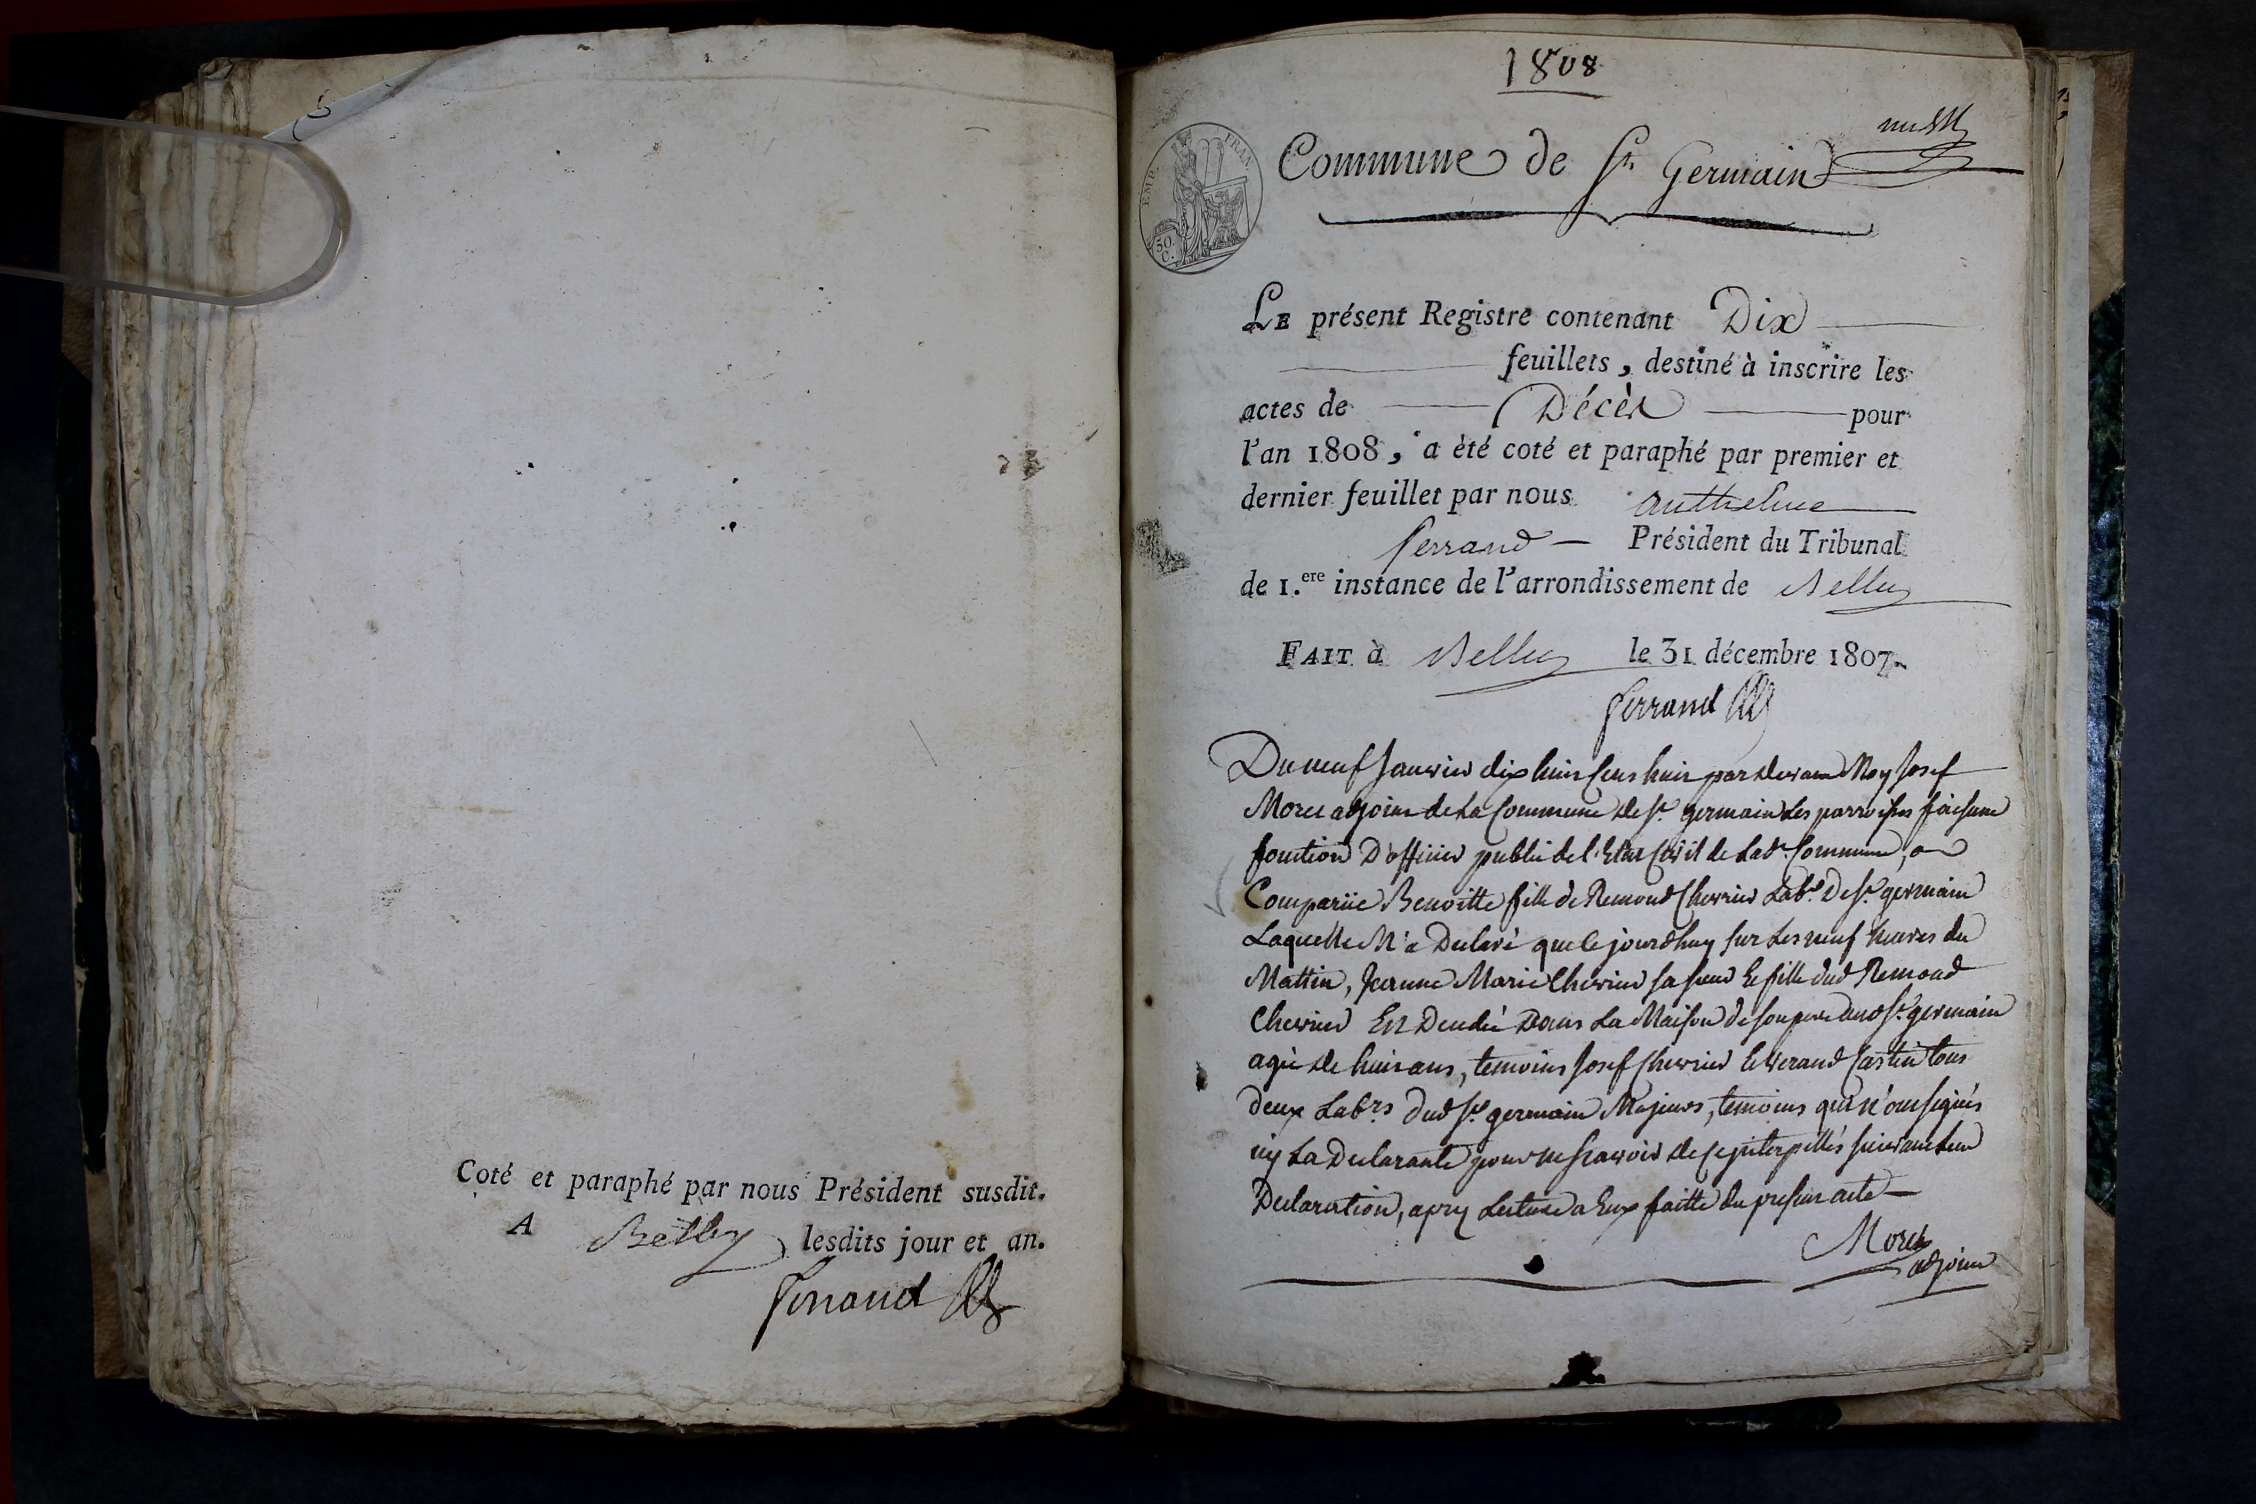 Coté et paraphé par nous Président susdit.
A Belley lesdits jour et an.
Ferrand
1808
EMP. FRAN.
50.
C.
Commune de St Germain
LE présent Registre contenant Dix
feuillets, destiné à inscrire les
actes de Décès pour
l'an 1808, a èté coté et paraphé par premier et
dernier feuillet par nous anthelme
ferrand Président du Tribunal
de 1.ere instance de l'arrondissement de Belley
FAIT à Belley le 31 décembre 1807.
ferrand
Du neuf Janvier dix huit Cens huit par devant Moy Josef
Moret adjoint de La Commune de St. germain Les parroisses faisant
fonction D'officier public de l'Etat Civil de Lad.e Commune, a
Comparüe Benoitte fille de Remond Chevrier Lab.r De St. germain
Laquelle M'a Declaré que cejourdhuy sur Les neuf heures du
Mattin, Jeanne Marie Chevrier sa sœur Et fille dud Remond
Chevrier Est Decedée Dans La Maison de son pere aud St. germain
agée de huit ans, temoins Josef Chevrier Et tous
deux Lab.rs dud St. germain Majeurs, temoins qui n'ont signés
ny La Declarante pour ne sçavoir de ce interpellés suivant Leur
Declaration, apres Lecture a Eux faitte du present acte
Moret
adjoint